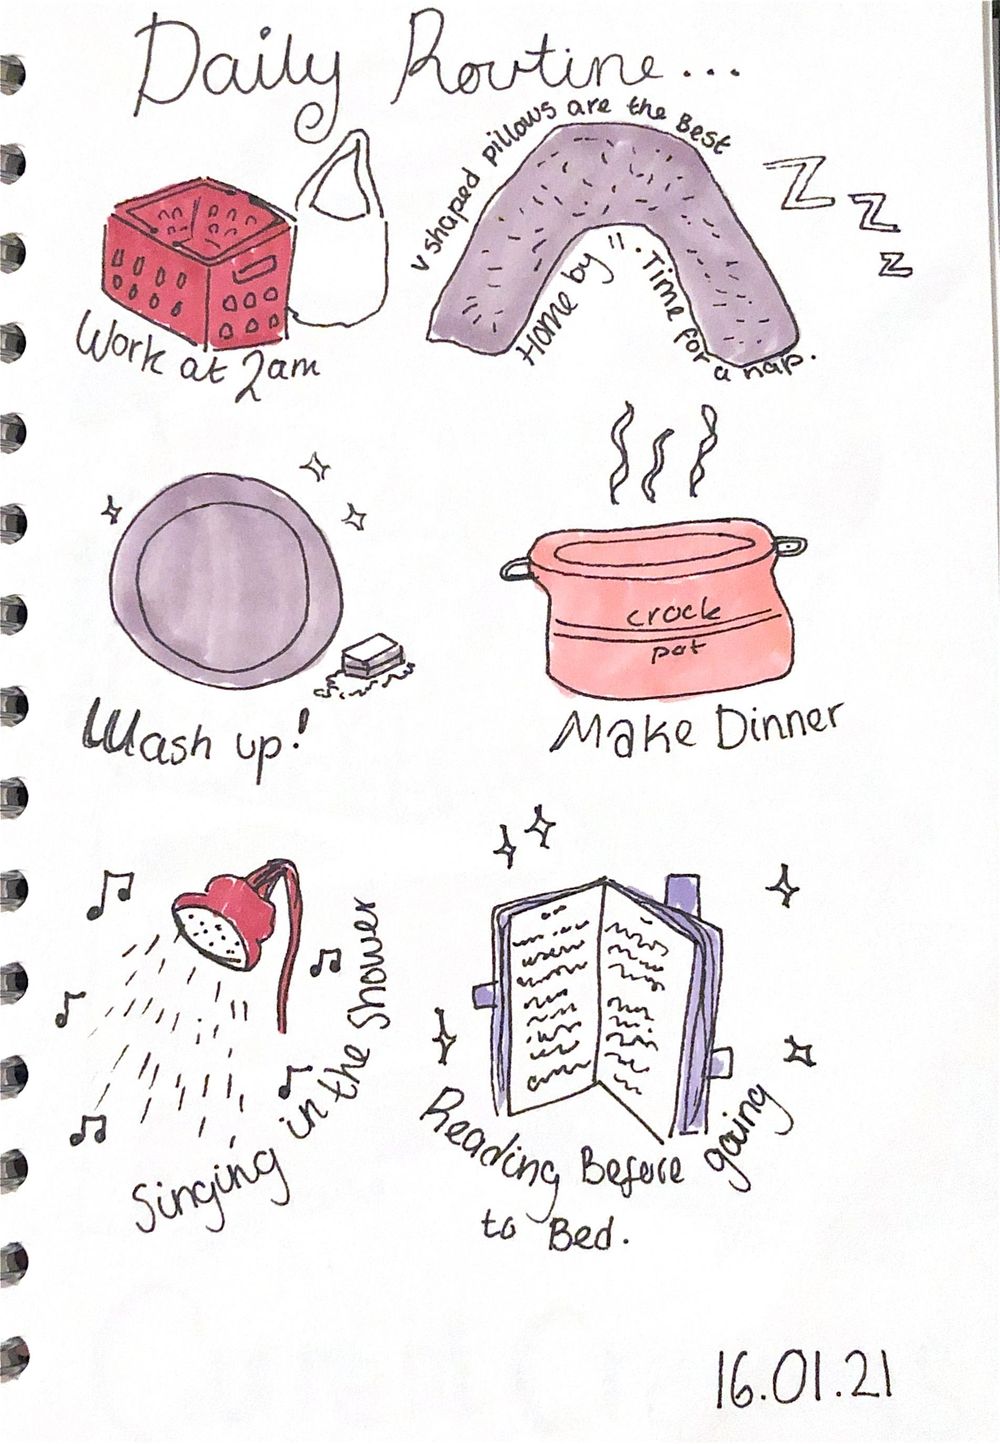 Daily Routine...
Work at 2am
v shaped pillows are the Best
Home by 11. Time for a nap.
Z Z Z
Wash up!
crock
pot
Make Dinner
Singing in the Shower
Reading Before going
to Bed.
16.01.21